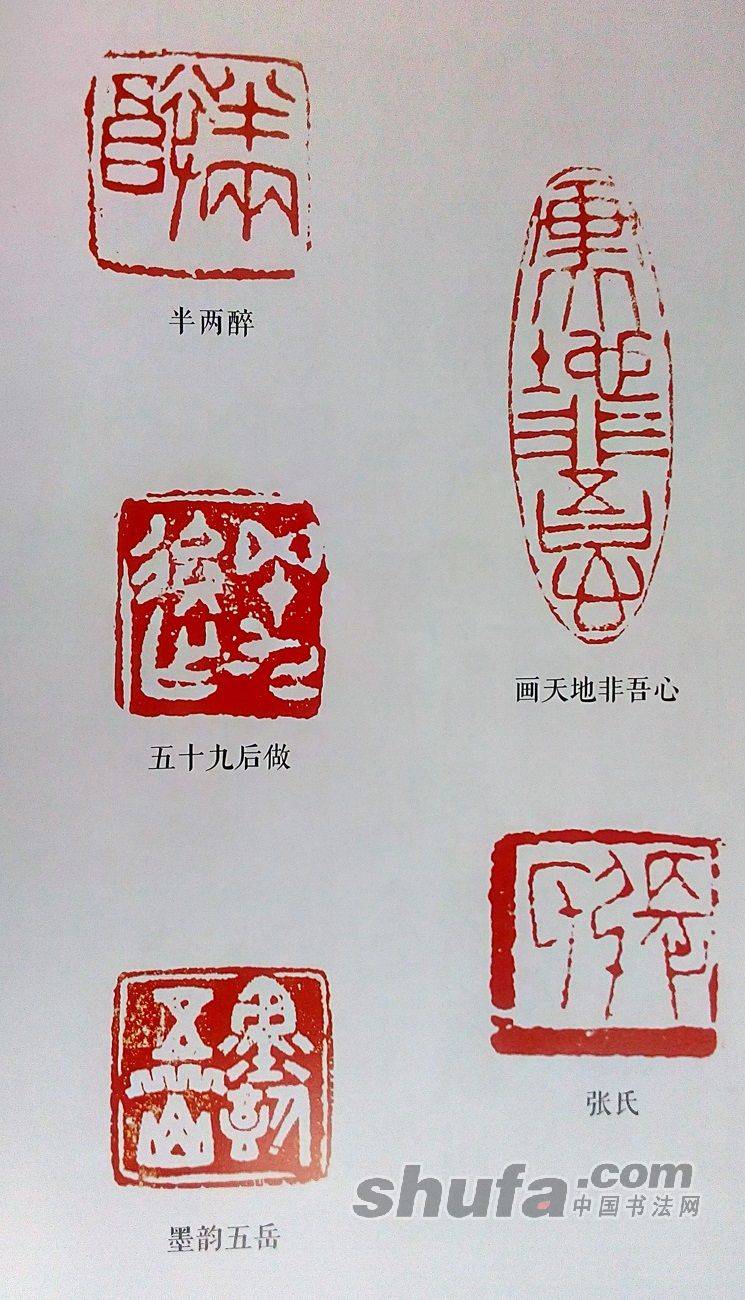 半两醉
画天地非吾心
五十九后做
张氏
墨韵五岳
shufa.com
中国书法网